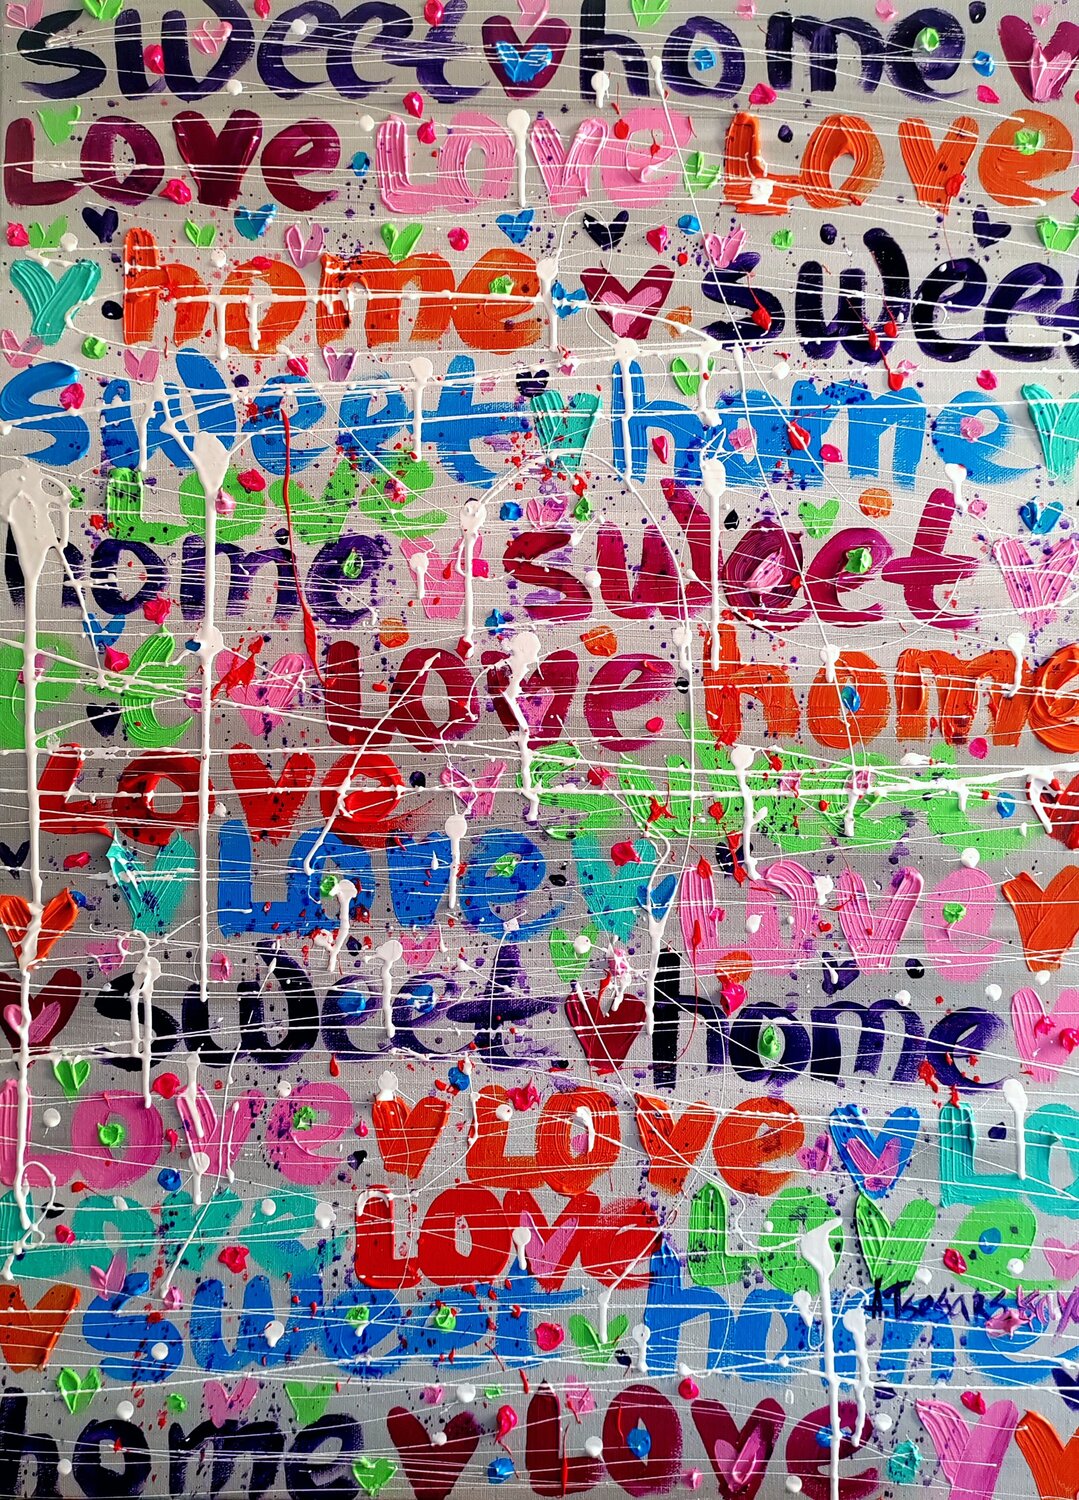 sweet home
Love Love Love
home sweet
sweet home
Love
home sweet
Love home
Love sweet
Love Love
sweet home
Love Love Lo
Love Love
sweet home
A Tsesarskaya
home Love